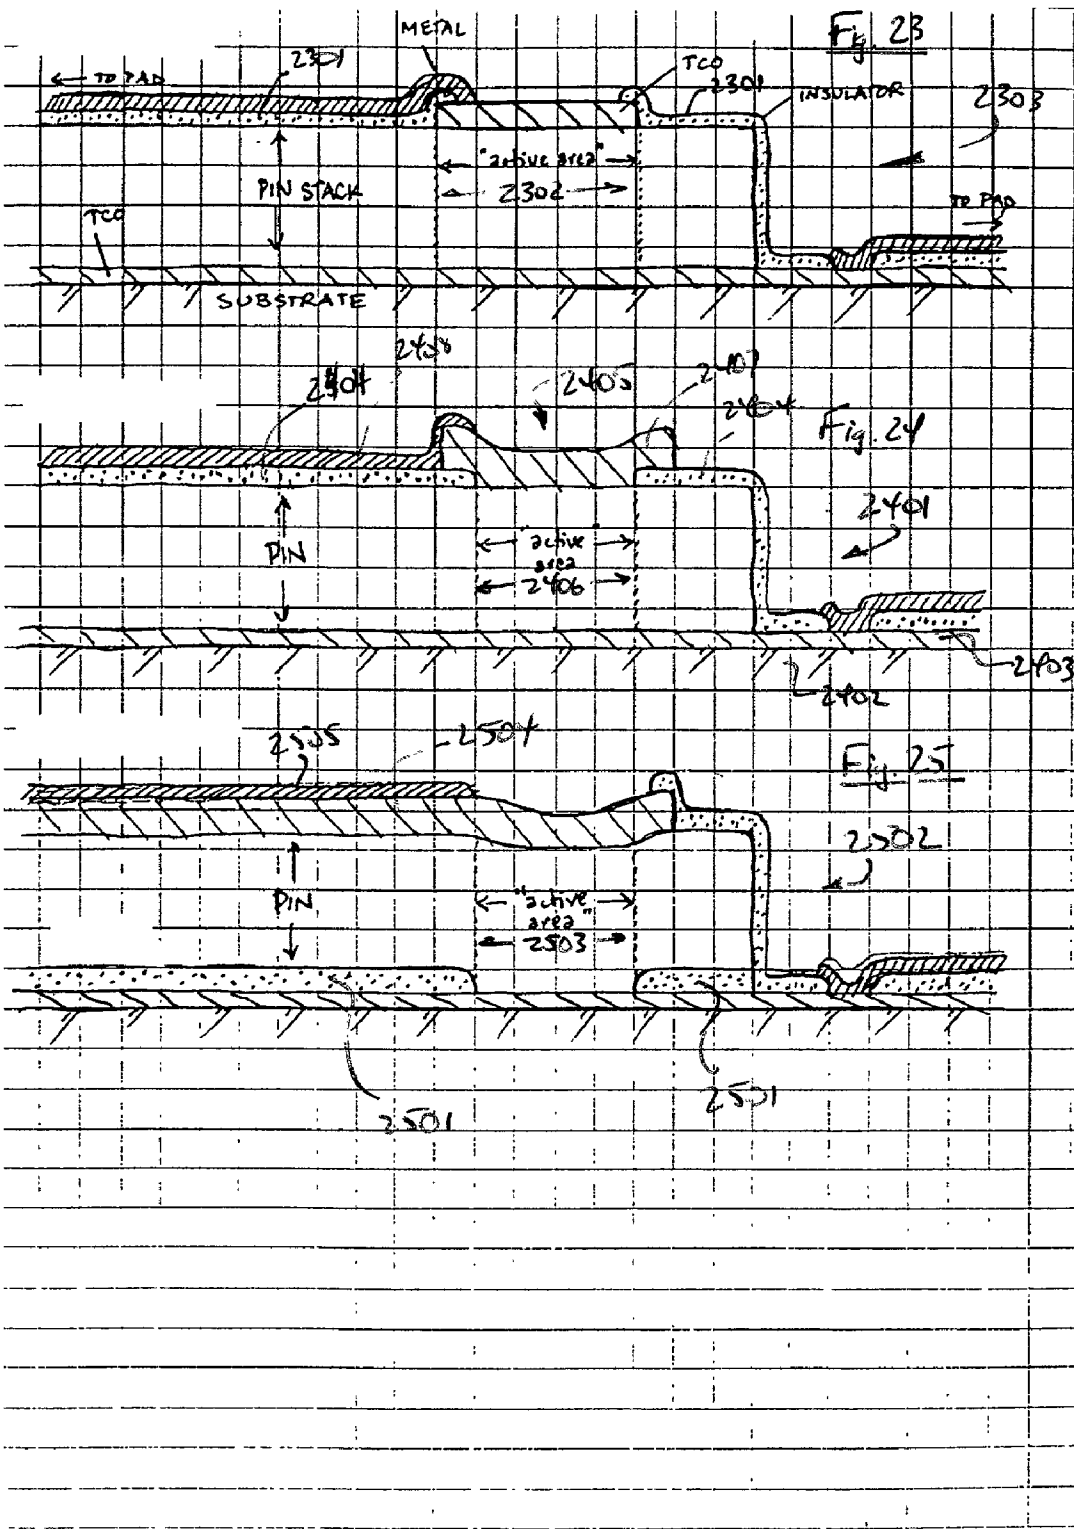 Fig. 23
METAL
2301
← TO PAD
TCO
2301
INSULATOR
2303
"active area"
2302
PIN STACK
TCO
TO PAD →
SUBSTRATE
2408
2404
2405
2407
2404
Fig. 24
2401
PIN
"active
area"
2406
2403
2402
2505
2504
Fig. 25
2502
PIN
"active
area"
2503
2501
2501